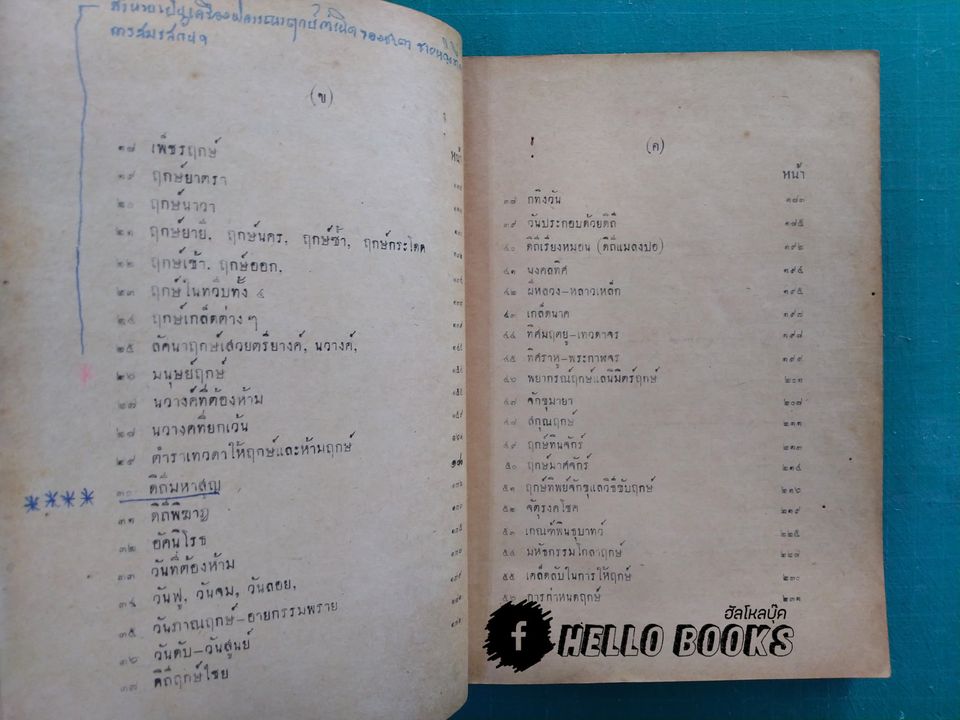 (ข)
หน้า
๑๘ เพ็ชรฤกษ์
๑๙ ฤกษ์ยาตรา
๒๐ ฤกษ์นาวา
๒๑ ฤกษ์ยายี, ฤกษ์นคร, ฤกษ์ซ้ำ, ฤกษ์กระโดด
๒๒ ฤกษ์เข้า. ฤกษ์ออก,
๒๓ ฤกษ์ในทวีปทั้ง ๔
๒๔ ฤกษ์เกล็ดต่าง ๆ
๒๕ ลัคนาฤกษ์เสวยตรียางค์, นวางค์,
๒๖ มนุษย์ฤกษ์
๒๗ นวางค์ที่ต้องห้าม
๒๘ นวางคที่ยกเว้น
๒๙ ตำราเทวดาให้ฤกษ์และห้ามฤกษ์
๓๐ ดิถีมหาสูญ
๓๑ ดิถีพิฆาฏ
๓๒ อัคนิโรธ
๓๓ วันที่ต้องห้าม
๓๔ วันฟู, วันจม, วันลอย,
๓๕ วันภาณฤกษ์-อายกรรมพราย
๓๖ วันดับ-วันสูนย์
๓๗ ดิถีฤกษ์ไชย
(ค)
หน้า
๓๘ กทิงวัน ๑๘๓
๓๙ วันประกอบด้วยดิถี ๑๘๕
๔๐ ดิถีเรียงหมอน (ดิถีแมลงปอ) ๑๙๒
๔๑ มงคลทิศ ๑๙๔
๔๒ ผีหลวง-หลาวเหล็ก ๑๙๕
๔๓ เกล็ดนาค ๑๙๗
๔๔ ทิศมฤตยู-เทวดาจร ๑๙๘
๔๕ ทิศราหู-พระกาฬจร ๑๙๙
๔๖ พยากรณ์ฤกษ์แลนิมิตร์ฤกษ์ ๒๐๑
๔๗ จักษุมายา ๒๐๗
๔๘ สกุณฤกษ์ ๒๑๑
๔๙ ฤกษ์ทินจักร์ ๒๑๓
๕๐ ฤกษ์มาศจักร์ ๒๑๔
๕๑ ฤกษ์ทิพย์จักขุแลวิธีขับฤกษ์ ๒๑๖
๕๒ จัตุรงคโชค ๒๑๙
๕๓ เกณฑ์พินธุบาทว์ ๒๒๕
๕๔ มหัธกรรมโกลาฤกษ์ ๒๒๗
๕๕ เคล็ดลับในการให้ฤกษ์ ๒๓๐
๕๖ การกำหนดฤกษ์ ๒๓๑
ฮัลโหลบุ๊ค
HELLO BOOKS